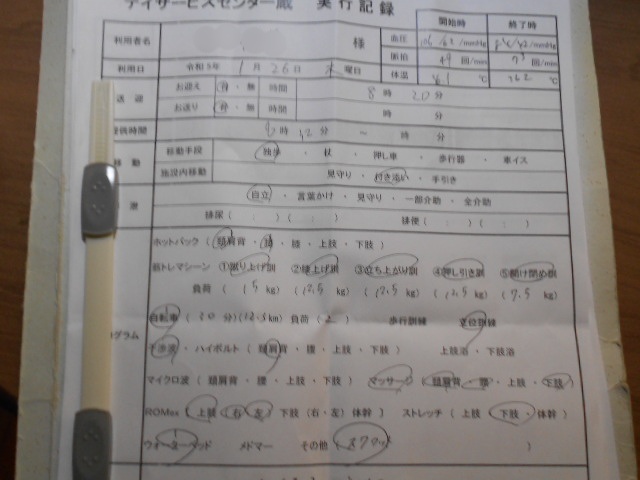 デイサービスセンター蔵 実行記録
利用者名 様
開始時 終了時
血圧 /mmHg /mmHg
脈拍 49 回/min 73 回/min
体温 ℃ 36.2 ℃
利用日 令和5年 1月26日 木曜日
送迎 お迎え 有・無 時間 8時20分
お送り 有・無 時間 時 分
提供時間 時 分 ～ 時 分
移動 移動手段 独歩 ・ 杖 ・ 押し車 ・ 歩行器 ・ 車イス
施設内移動 見守り ・ 付き添い ・ 手引き
自立 ・ 言葉かけ ・ 見守り ・ 一部介助 ・ 全介助
排尿 ( : ) ( : ) 排便 ( : ) ( : )
ホットパック ( 頚肩背 ・ 腰 ・ 膝 ・ 上肢 ・ 下肢 )
筋トレマシーン ①蹴り上げ訓 ②膝上げ訓 ③立ち上がり訓 ④押し引き訓 ⑤開け閉め訓
負荷 ( 15 kg) (12.5 kg) (12.5 kg) (12.5 kg) (7.5 kg)
自転車 ( 30 分) (12.5km) 負荷 ( 2 ) 歩行訓練 立位訓練
グラム
干渉波 ・ ハイボルト ( 頚肩背 ・ 腰 ・ 上肢 ・ 下肢 ) 上肢浴 ・ 下肢浴
マイクロ波 ( 頚肩背 ・ 腰 ・ 上肢 ・ 下肢 ) マッサージ ( 頚肩背 ・ 腰 ・ 上肢 ・ 下肢 )
ROMex ( 上肢 (右・左) 下肢 (右・左) 体幹 ) ストレッチ ( 上肢 ・ 下肢 ・ 体幹 )
ウォーターベッド メドマー その他 ( )